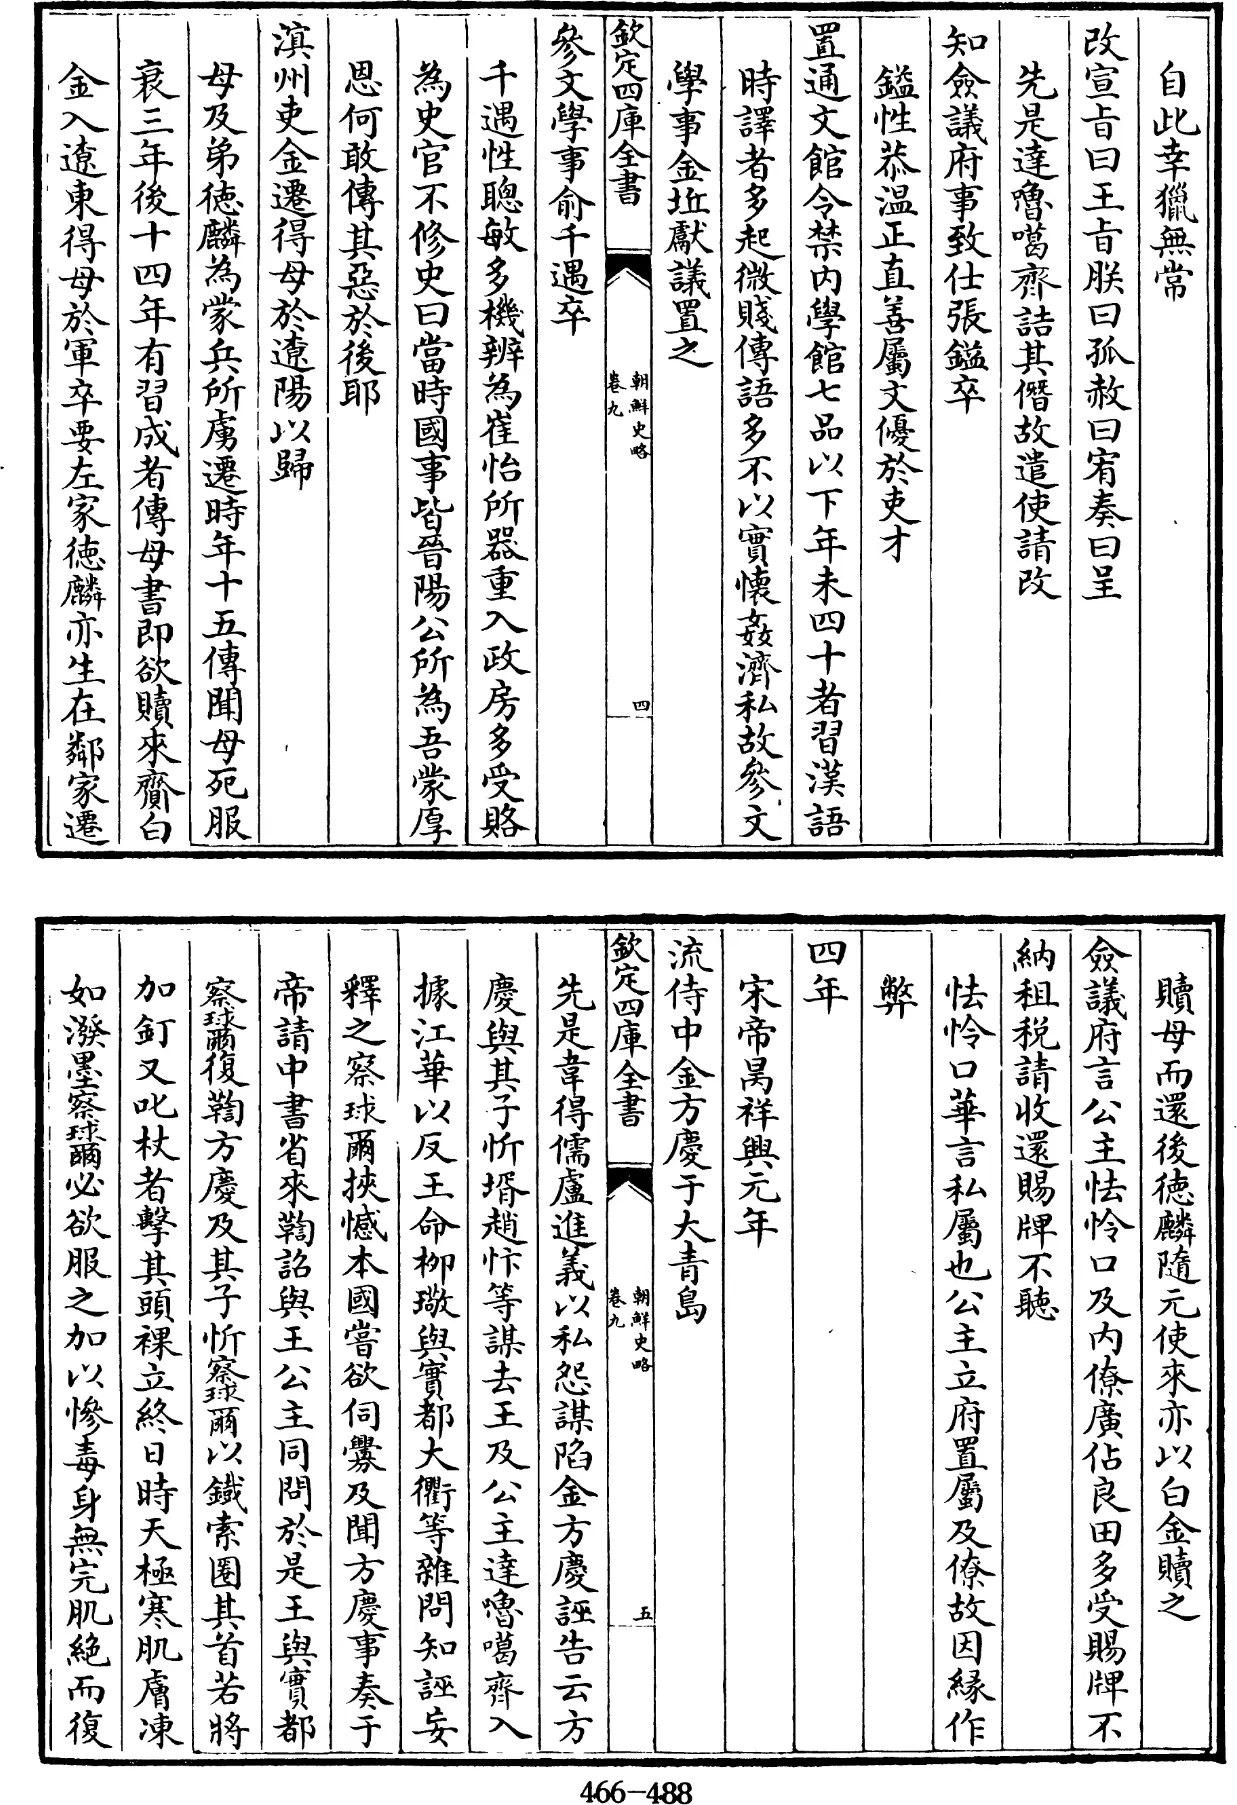 自此幸獵無常
改宣旨曰王旨朕曰孤赦曰宥奏曰呈
先是達嚕噶齊詰其僭故遣使請改
知僉議府事致仕張鎰卒
鎰性恭温正直善屬文優於吏才
置通文館令禁内學館七品以下年未四十者習漢語
時譯者多起微賤傳語多不以實懷姦濟私故參文
學事金坵獻議置之
欽定四庫全書
朝鮮史略
卷九
四
參文學事俞千遇卒
千遇性聰敏多機辨為崔怡所器重入政房多受賂
為史官不修史曰當時國事皆晉陽公所為吾蒙厚
恩何敢傳其惡於後耶
滇州吏金遷得母於遼陽以歸
母及弟德麟為蒙兵所虜遷時年十五傳聞母死服
衰三年後十四年有習成者傳母書即欲贖來齎白
金入遼東得母於軍卒要左家德麟亦生在鄰家遷
贖母而還後德麟隨元使來亦以白金贖之
僉議府言公主怯怜口及内僚廣佔良田多受賜牌不
納租税請收還賜牌不聽
怯怜口華言私屬也公主立府置屬及僚故因緣作
弊
四年
宋帝昺祥興元年
流侍中金方慶于大青島
欽定四庫全書
朝鮮史略
卷九
五
先是韋得儒盧進義以私怨謀陷金方慶誣告云方
慶與其子忻壻趙忭等謀去王及公主達嚕噶齊入
據江華以反王命柳璥與實都大衢等雜問知誣妄
釋之察球爾挾憾本國嘗欲伺釁及聞方慶事奏于
帝請中書省來鞫詔與王公主同問於是王與實都
察球爾復鞫方慶及其子忻察球爾以鐵索圈其首若將
加釘又叱杖者擊其頭裸立終日時天極寒肌膚凍
如潑墨察球爾必欲服之加以慘毒身無完肌絶而復
466-488